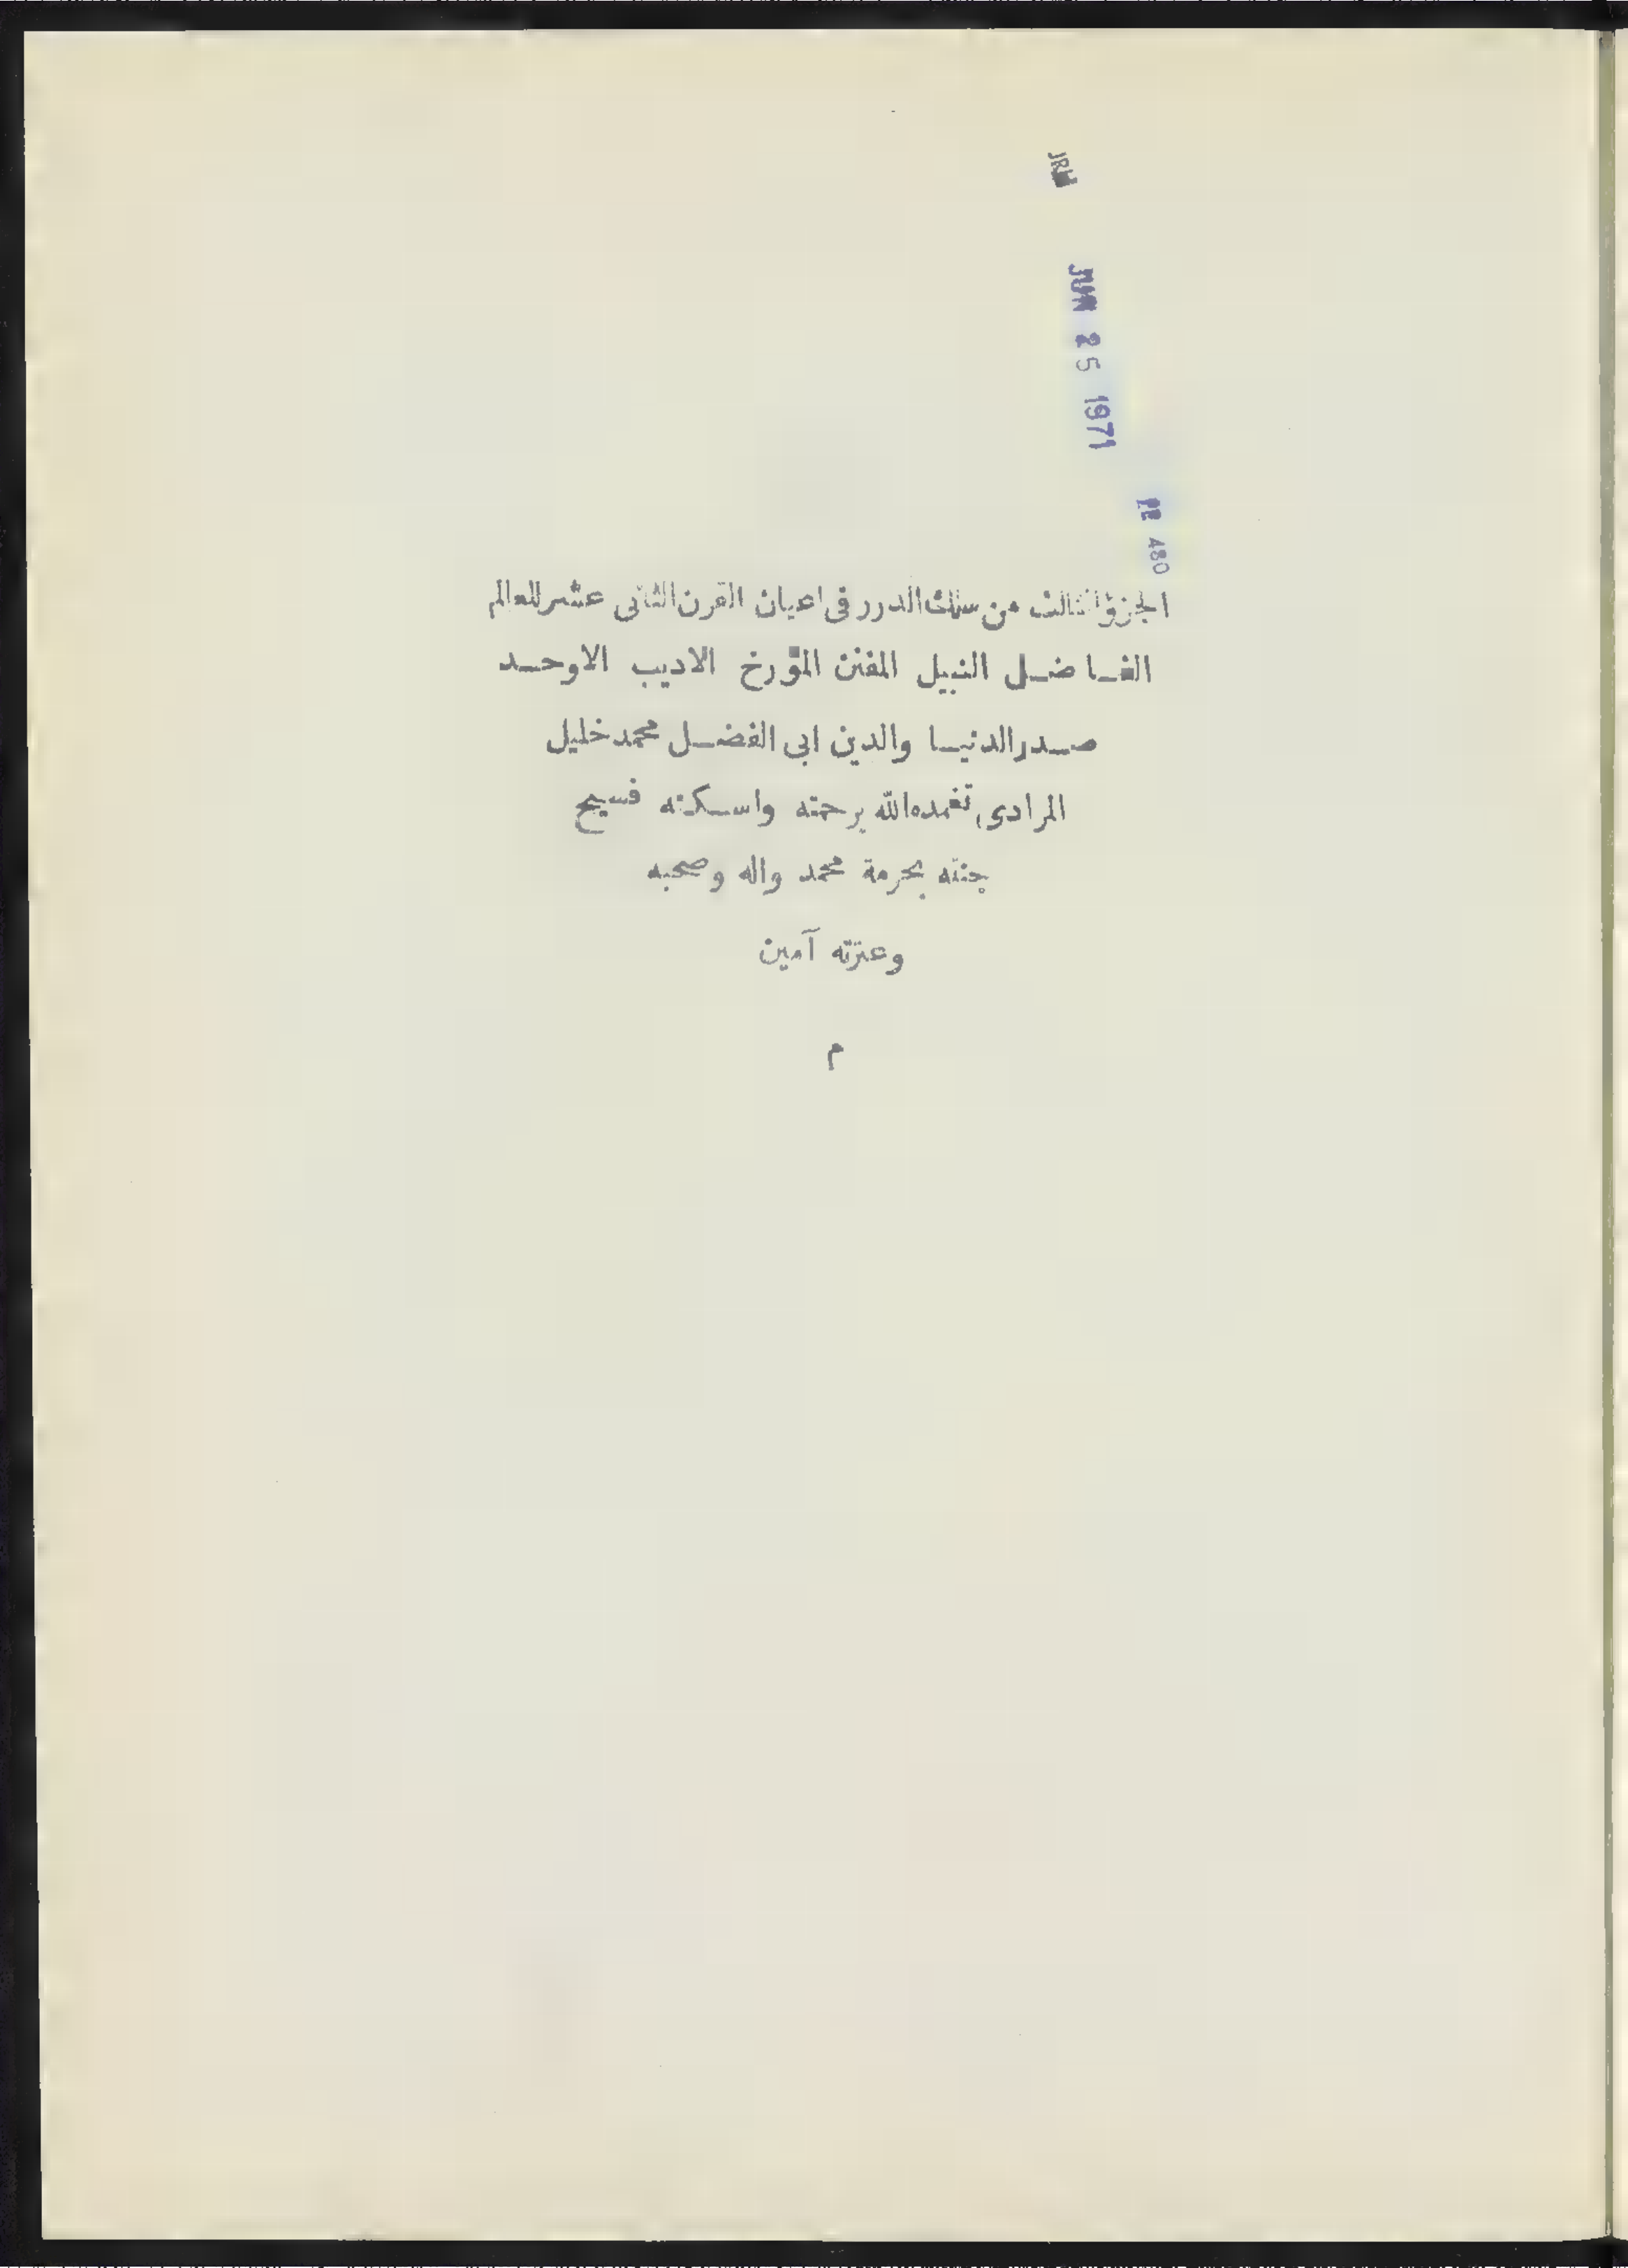 JUN 25 1971
PR 480
الجزؤ الثالث من سلك الدرر فى اعيان القرن الثانى عشر للعالم
الفاضل النبيل المفنن المؤرخ الاديب الاوحد
صدر الدنيا والدين ابى الفضل محمد خليل
المرادى تغمده الله برحمته واسكنه فسيح
جنته بحرمة محمد واله وصحبه
وعترته آمين
م